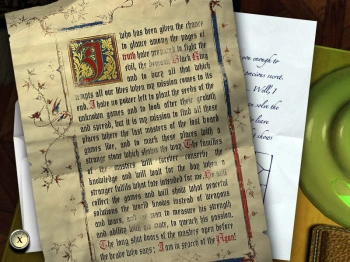 I who has been given the chance
to glance among the pages of
truth have to fight the
evil, the Black King
and to bury all that which
tempts all our lives when my mission comes to its
end. I have no power left to plant the seeds of the
unknown games and to look after their growth
and spread, but it is my mission to find all these
places where the last masters of the last board
games lie, and to mark these places with a
strange stone which shows the way. The families
of the masters will forever conserve the
knowledge and will wait for the day when a
stranger fulfils what fate intended for me. He will
collect the games and will show what peaceful
solutions the world knows instead of weapons
and wars, and to measure his strength
and ability with his to reward his passion.
The long shut doors of the mastery open before
the brave who says: I am in search of the Agon!
you enough to
precious secret.
Well, I
solve the
shows
X